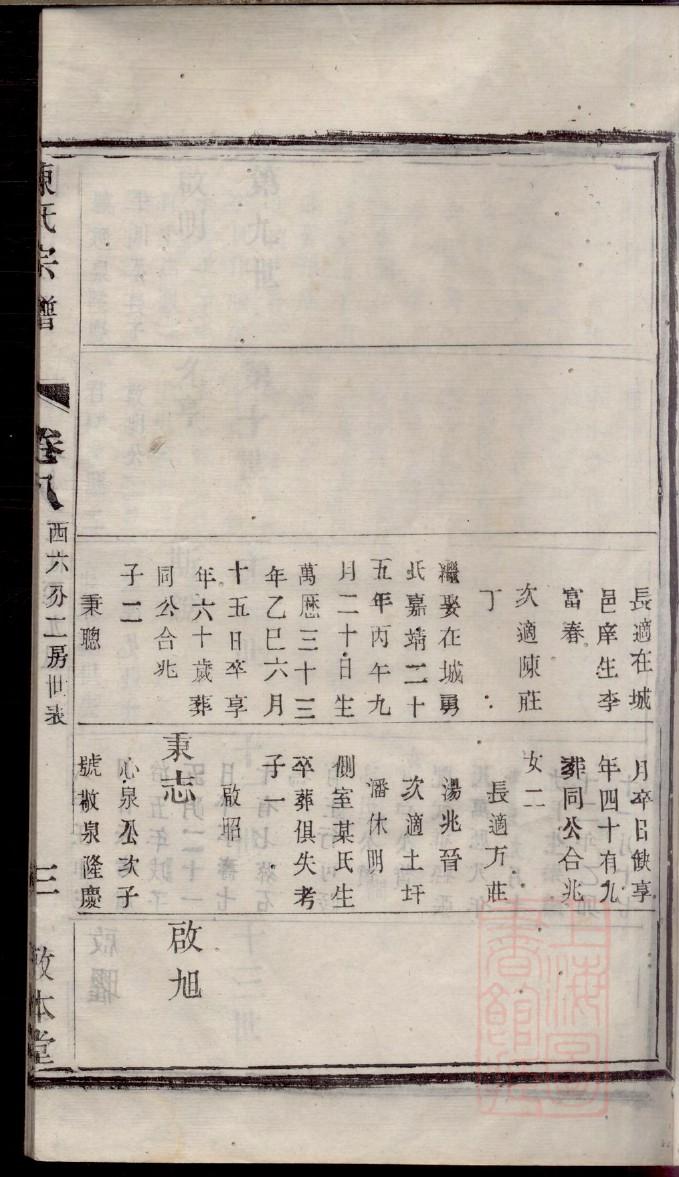 長適在城
邑庠生李
富春
次適陳莊
丁
繼娶在城勇
氏嘉靖二十
五年丙午九
月二十日生
萬曆三十三
年乙巳六月
十五日卒享
年六十歲葬
同公合兆
子二
秉聰
月卒日缺享
年四十有九
葬同公合兆
女二
長適方莊
湯兆晉
次適土圩
潘休明
側室某氏生
卒葬俱失考
子一
啟昭
秉志
心泉公次子
號敬泉隆慶
啟旭
陳氏宗譜
卷八
西六分二房世表
三
敦本堂
上海圖書館藏